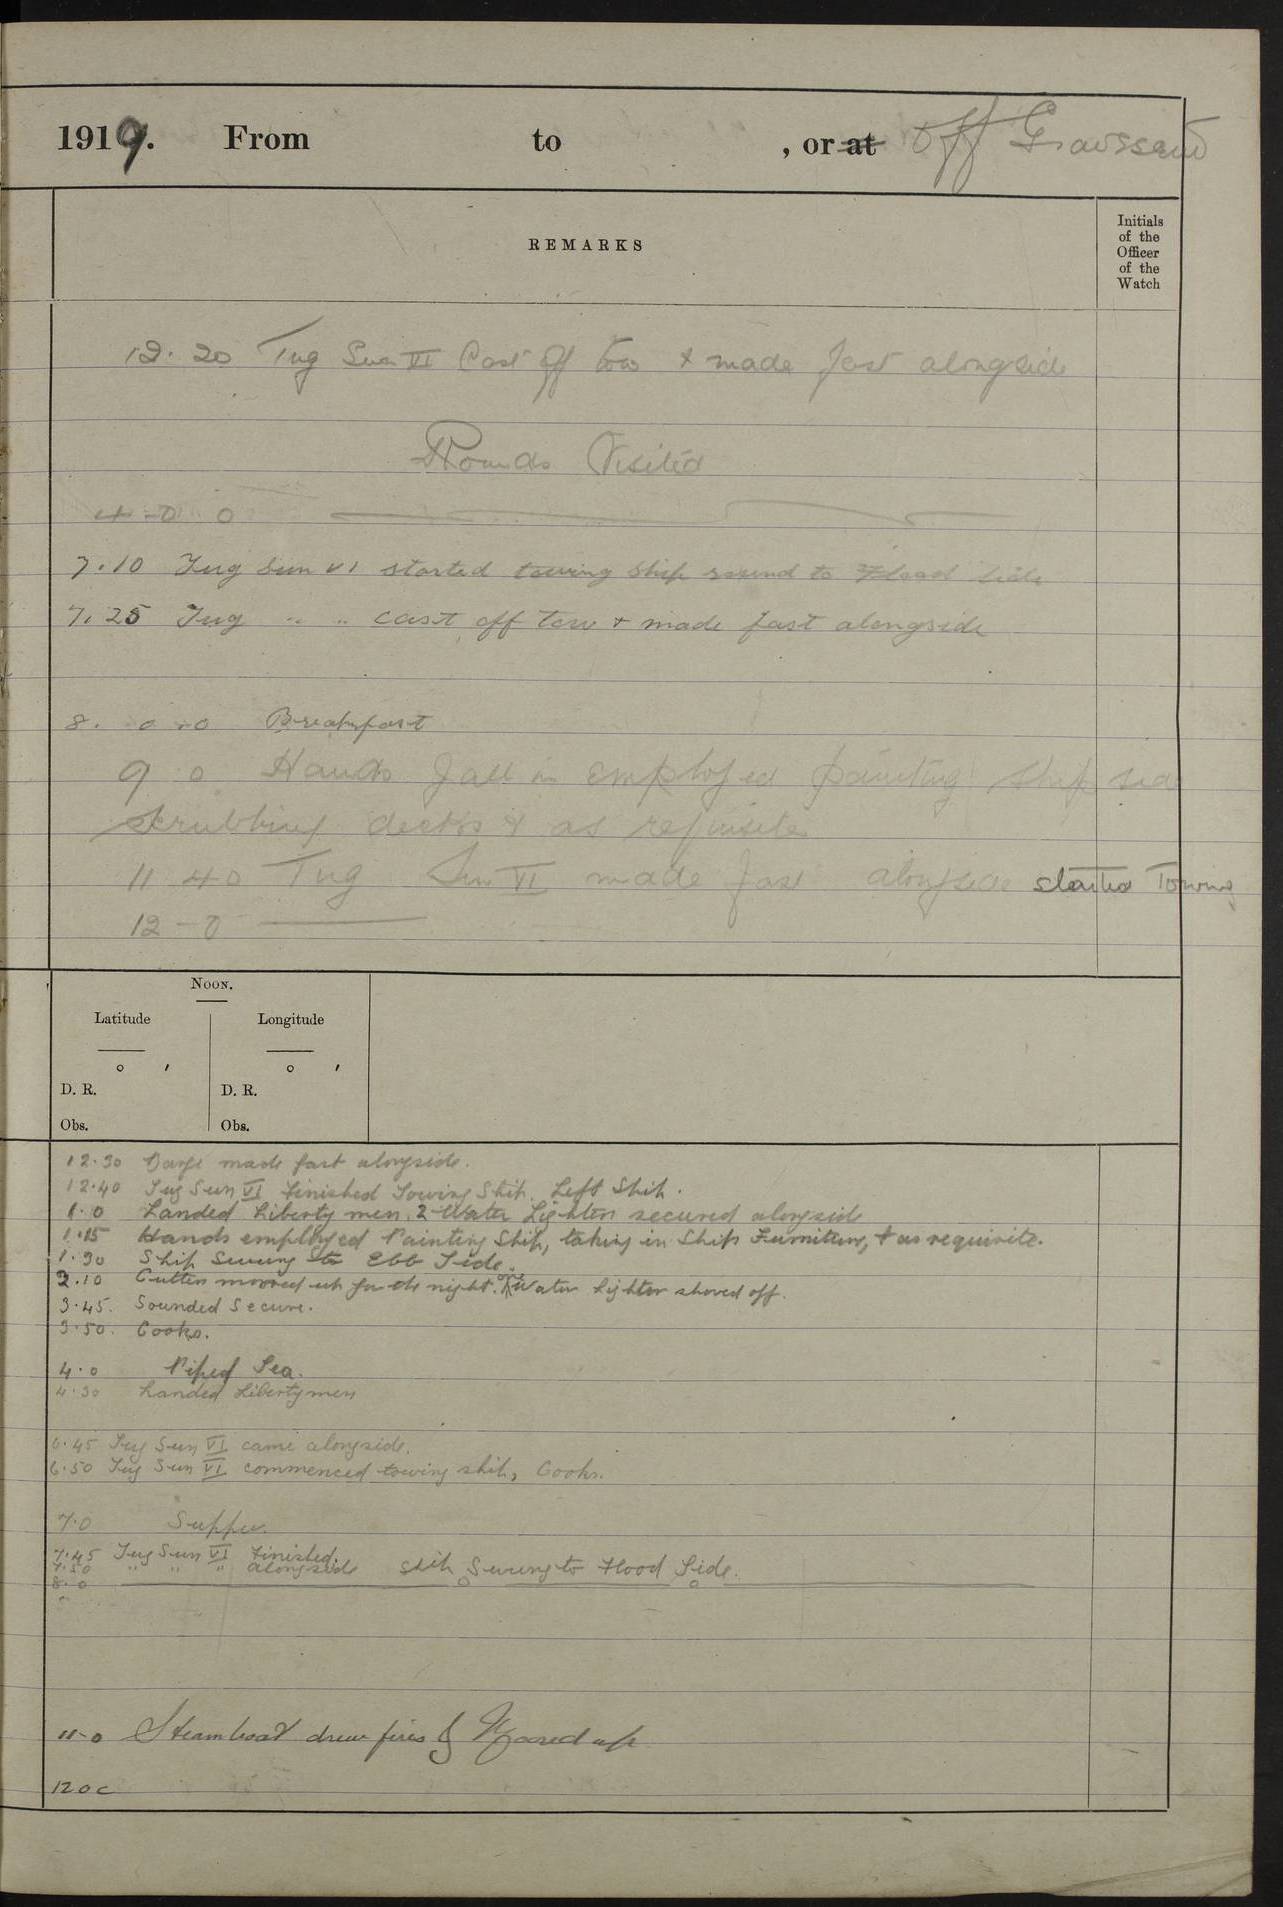 1919. From to , or at Off Gravesend
REMARKS
Initials
of the
Officer
of the
Watch
12.20 Tug Sun VI Cast off tow & made fast alongside
Rounds Visited
4-0 0
7.10 Tug Sun VI started towing ship round to Flood tide
7.25 Tug " " cast off tow & made fast alongside
8. 0 Breakfast
9 0 Hands fall in employed painting ship side
Scrubbing decks & as requisite
11 40 Tug Sun VI made fast alongside started Towing
12-0
NOON.
Latitude Longitude
° ′ ° ′
D. R. D. R.
Obs. Obs.
12.30 Barge made fast alongside.
12.40 Tug Sun VI Finished Towing Ship. Left Ship.
1.0 Landed Liberty men. 2 Water Lighters secured alongside
1.15 Hands employed Painting Ship, taking in Ships Furniture, & as requisite.
1.30 Ship Swung to Ebb Tide.
3.10 Cutters moored up for the night. one Water Lighter shoved off.
3.45. Sounded Secure.
3.50. Cooks.
4.0 Piped Tea.
4.30 Landed Libertymen
6.45 Tug Sun VI came alongside.
6.50 Tug Sun VI commenced towing ship, Cooks.
7.0 Supper.
7.45 Tug Sun VI Finished.
7.50 " " " alongside Ship Swung to Flood Tide.
8.0
11-0 Steamboat drew fires & Moored up
12 0